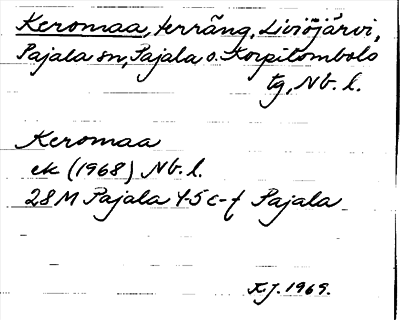 Keromaa, terräng, Liviöjärvi,
Pajala sn, Pajala o. Korpilombolo
tg, Nb. l.
Keromaa
ek (1968) Nb. l.
28M Pajala 4-5 c-f Pajala
K.J. 1969.